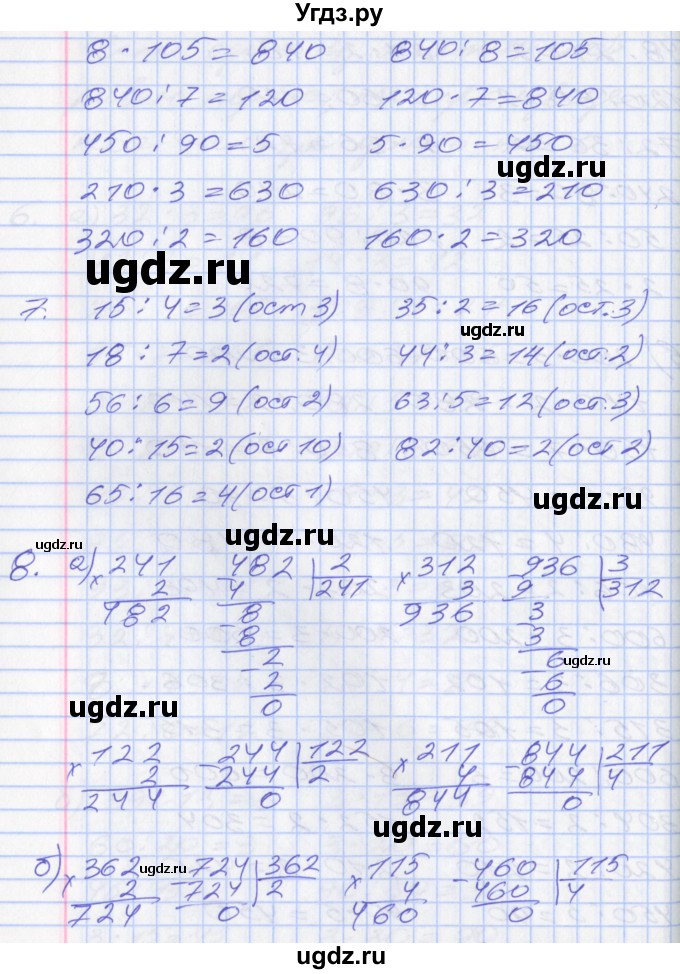 Угдз.ру
8 · 105 = 840 840 : 8 = 105
840 : 7 = 120 120 · 7 = 840
450 : 90 = 5 5 · 90 = 450
ugdz.ru
210 · 3 = 630 630 : 3 = 210
320 : 2 = 160 160 · 2 = 320
ugdz.ru
7. 15 : 4 = 3 (ост 3) 35 : 2 = 16 (ост. 3)
ugdz.ru
18 : 7 = 2 (ост. 4) 44 : 3 = 14 (ост. 2)
56 : 6 = 9 (ост 2) 63 : 5 = 12 (ост. 3)
40 : 15 = 2 (ост 10) 82 : 40 = 2 (ост 2)
65 : 16 = 4 (ост 1) ugdz.ru
ugdz.ru ugdz.ru
8. а) × 241 - 482 | 2 × 312 - 936 | 3
2 4 | 241 3 9 | 312
482 - 8 936 3
8 3
- 2 - 6 ugdz.ru
2 6
ugdz.ru 0 0
× 122 - 244 | 122 × 211 - 844 | 211
2 244 | 2 4 844 | 4
244 0 844 0
ugdz.ru
б) × 362 ugdz.ru - 724 | 362 × 115 - 460 | 115
2 724 | 2 4 460 | 4
724 0 460 0
ugdz.ru ugdz.ru